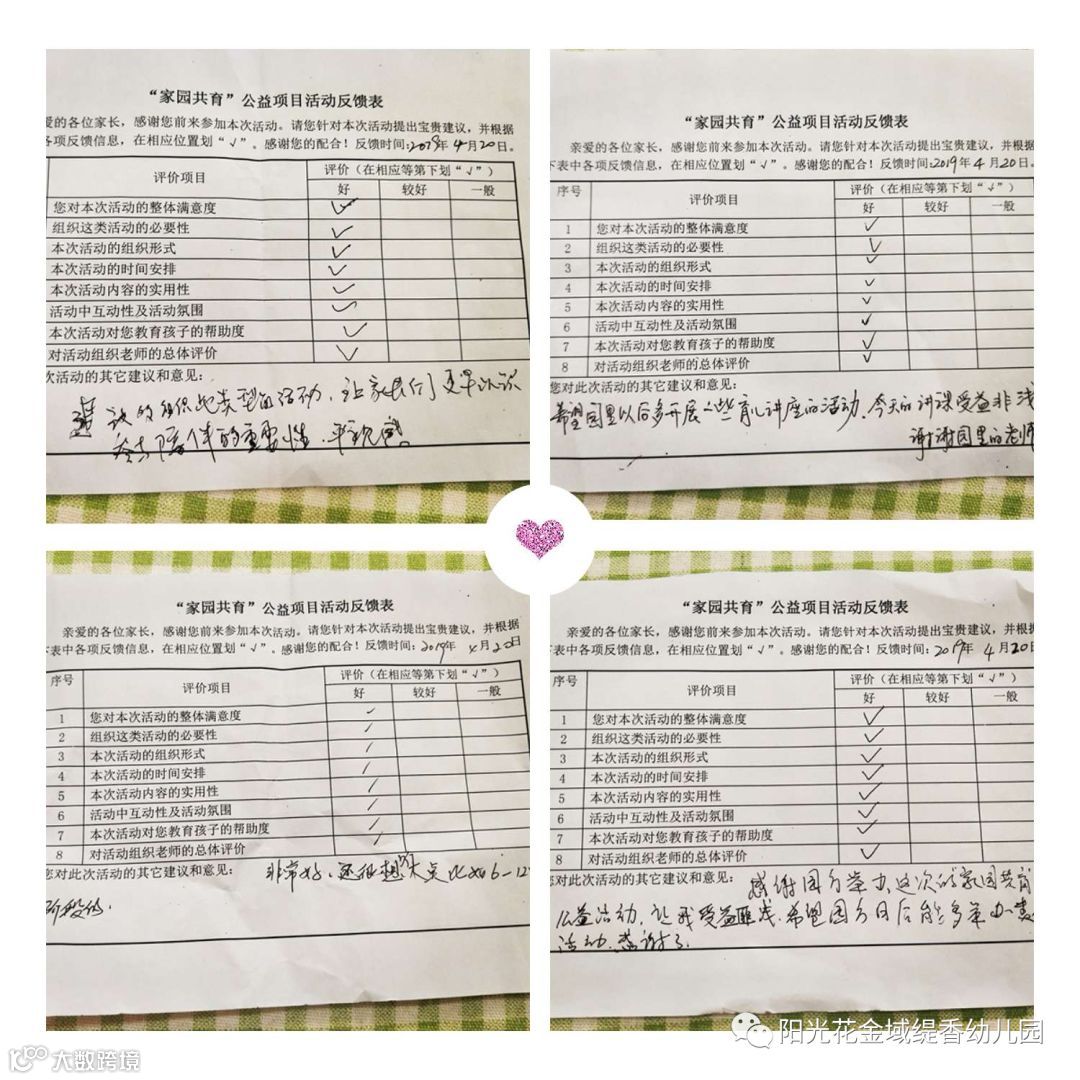 “家园共育”公益项目活动反馈表
爱的各位家长，感谢您前来参加本次活动。请您针对本次活动提出宝贵建议，并根据
各项反馈信息，在相应位置划“√”。感谢您的配合！反馈时间:2019年4月20日。
评价项目 评价（在相应等第下划“√”）
好 较好 一般
您对本次活动的整体满意度 √
组织这类活动的必要性 √
本次活动的组织形式 √
本次活动的时间安排 √
本次活动内容的实用性 √
活动中互动性及活动氛围 √
本次活动对您教育孩子的帮助度 √
对活动组织老师的总体评价 √
次活动的其它建议和意见：
组织此类型的活动，让家长们更早认识
陪伴的重要性
“家园共育”公益项目活动反馈表
亲爱的各位家长，感谢您前来参加本次活动。请您针对本次活动提出宝贵建议，并根
下表中各项反馈信息，在相应位置划“√”。感谢您的配合！反馈时间:2019年4月20日。
序号 评价项目 评价（在相应等第下划“√”）
好 较好 一般
1 您对本次活动的整体满意度 √
2 组织这类活动的必要性 √
3 本次活动的组织形式 √
4 本次活动的时间安排 √
5 本次活动内容的实用性 √
6 活动中互动性及活动氛围 √
7 本次活动对您教育孩子的帮助度 √
8 对活动组织老师的总体评价 √
您对此次活动的其它建议和意见：
希望园里以后多开展一些育儿讲座的活动，今天的讲课受益非浅
谢谢园里的老师
“家园共育”公益项目活动反馈表
亲爱的各位家长，感谢您前来参加本次活动。请您针对本次活动提出宝贵建议，并根
下表中各项反馈信息，在相应位置划“√”。感谢您的配合！反馈时间：2019年4月20日
序号 评价项目 评价（在相应等第下划“√”）
好 较好 一般
1 您对本次活动的整体满意度 √
2 组织这类活动的必要性
3 本次活动的组织形式
4 本次活动的时间安排
5 本次活动内容的实用性
6 活动中互动性及活动氛围
7 本次活动对您教育孩子的帮助度
8 对活动组织老师的总体评价
您对此次活动的其它建议和意见： 非常好，还很想 点比如6-12
阶段的.
“家园共育”公益项目活动反馈表
亲爱的各位家长，感谢您前来参加本次活动。请您针对本次活动提出宝贵建议，并根
下表中各项反馈信息，在相应位置划“√”。感谢您的配合！反馈时间：2019年4月20日
序号 评价项目 评价（在相应等第下划“√”）
好 较好 一般
1 您对本次活动的整体满意度 √
2 组织这类活动的必要性 √
3 本次活动的组织形式 √
4 本次活动的时间安排 √
5 本次活动内容的实用性 √
6 活动中互动性及活动氛围 √
7 本次活动对您教育孩子的帮助度 √
8 对活动组织老师的总体评价 √
您对此次活动的其它建议和意见： 感谢园方举办这次的家园共育
公益活动，让我受益匪浅.希望园方日后能多举办
活动.感谢了.
阳光花金域缇香幼儿园
大数跨境